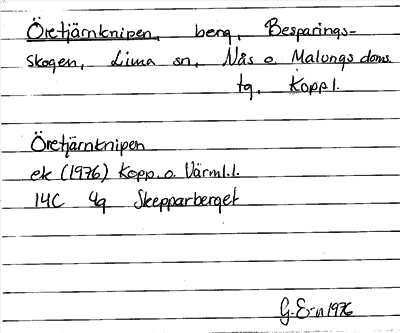 Öretjärnknipen, berg, Besparings-
skogen, Lima sn, Nås o. Malungs doms.
tg, Kopp l.
Öretjärnknipen
ek (1976) Kopp. o. Värml. l.
14C 4g Skepparberget
G. Ern 1976